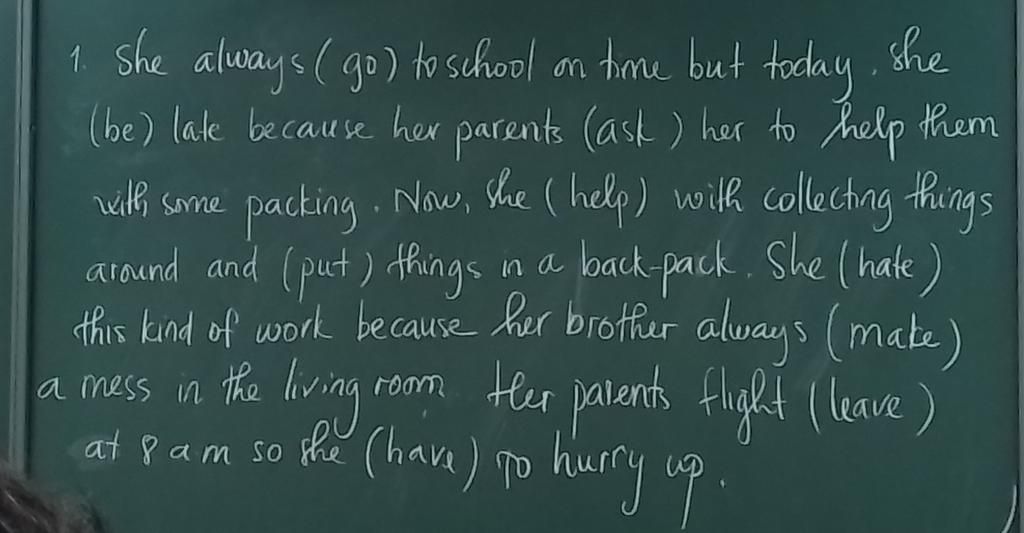 1. She always (go) to school on time but today, she
(be) late because her parents (ask) her to help them
with some packing. Now, she (help) with collecting things
around and (put) things in a back-pack. She (hate)
this kind of work because her brother always (make)
a mess in the living room. Her parents flight (leave)
at 8 am so she (have) to hurry up.